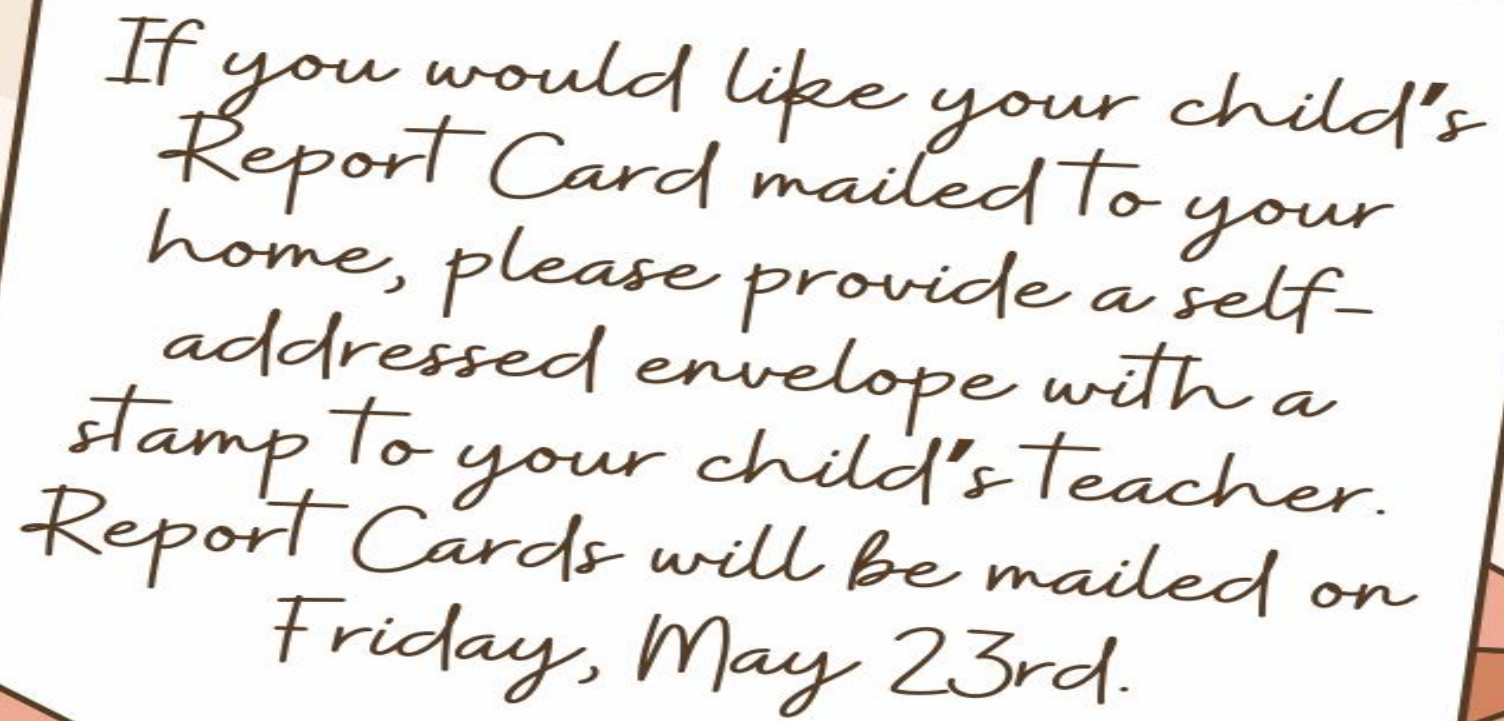 If you would like your child's
Report Card mailed to your
home, please provide a self-
addressed envelope with a
stamp to your child's teacher.
Report Cards will be mailed on
Friday, May 23rd.